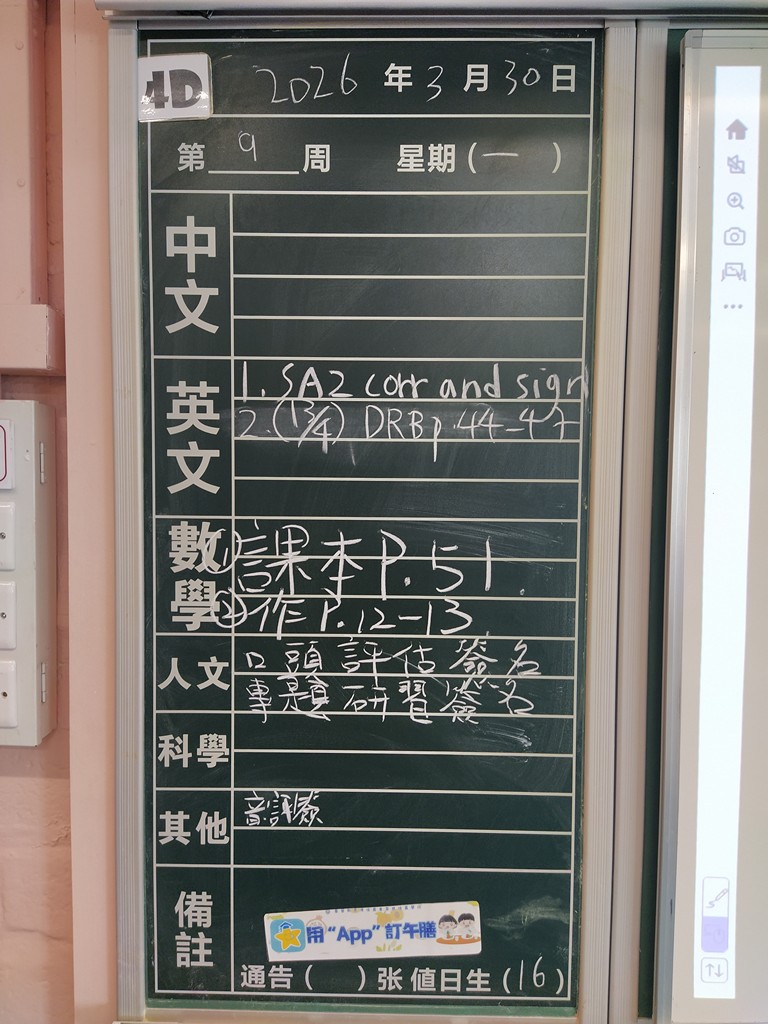 4D
2026 年 3 月 30 日
第 9 周 星期 (一 )
中文
英文
1. SA2 corr and sign
2. (13/4) DRB p.44-47
數學
① 課本 P. 51
② 作 P. 12-13
人文
口頭評估簽名
專題研習簽名
科學
其他
音評簽
備註
用 “App” 訂午膳
通告 ( ) 张 值日生 (16)